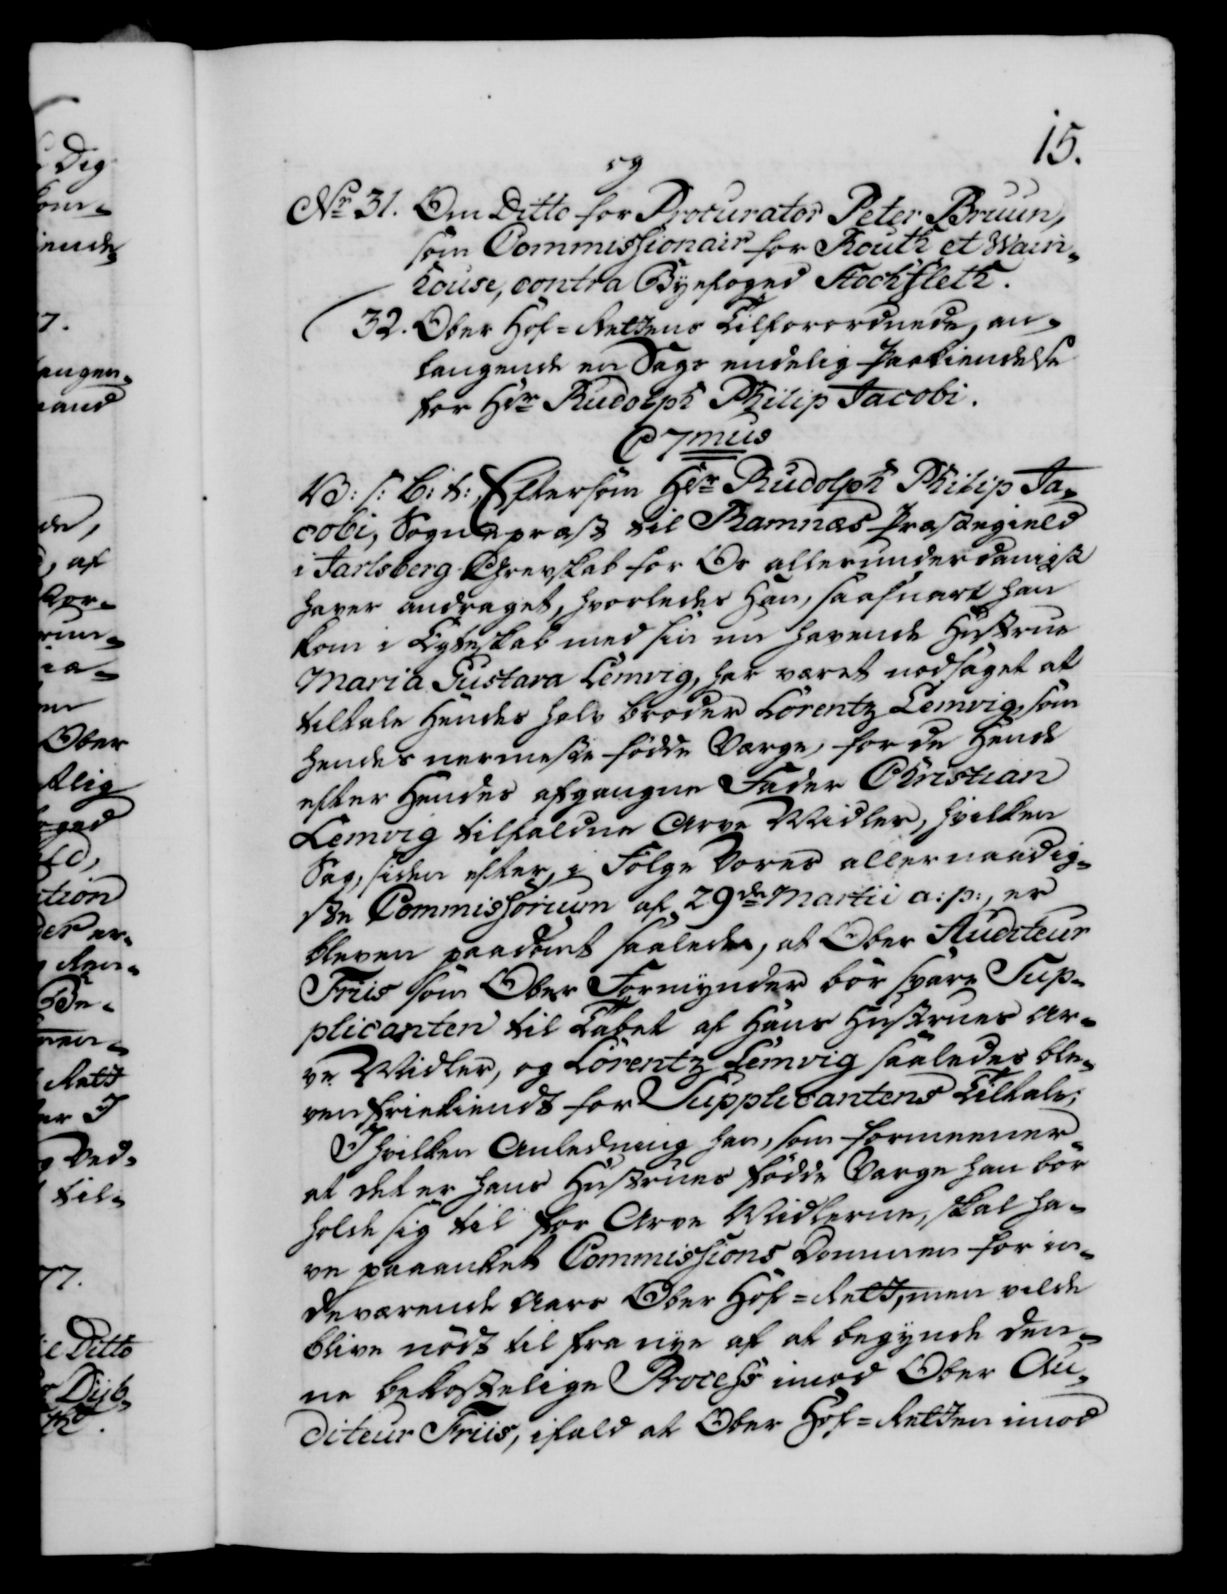 15.
og
No 31. Om Ditto for Procurator Peter Bruun,
som Commissionair for Routh et Wain-
house, contra Byefoged Stockfleth.
32. Ober Hof=Rettens Tilforordnede, an-
langende en Sags endelig Paakiendelse
for Hdr Rudolph Philip Jacobi.
C 7mus
V: s: G: t: Eftersom Hdr Rudolph Philip Ja-
cobi, Sogneprest til Ramnæs Præstegield
i Jarlsberg Grevskab for Os allerunderdanigst
haver andraget, hvorledes Han, saasnart han
kom i Egteskab med sin nu havende Hustrue
Maria Gustava Lemvig, har været nødsaget at
tiltale Hendes halv broder Lorentz Lemvig, som
hendes nermeste fødde Værge, for de Hende
efter Hendes afgangne Fader Christian
Lemvig tilfaldne Arve Midler, hvilken
Sag, siden efter, i Følge Vores allernaadig-
ste Commissorium af 29de Martii a: p:, er
bleven paadømt saaledes, at Ober Auditeur
Friis som Ober Formynder bør svare Sup-
plicanten til Tabet af Hans Hustrues Ar-
ve Midler, og Lorentz Lemvig saaledes ble-
ven friekiendt for Supplicantens Tiltale;
I hvilken Anledning han, som formeener
at det er hans Hustrues fødde Værge han bør
holde sig til for Arve Midlerne, skal ha-
ve paaanket Commissions Dommen for in-
deværende Aars Ober Hof=Rett, men vilde
blive nødt til fra nye af at begynde den-
ne bekostelige Process imod Ober Au-
diteur Friis, ifald at Ober Hof=Retten imod